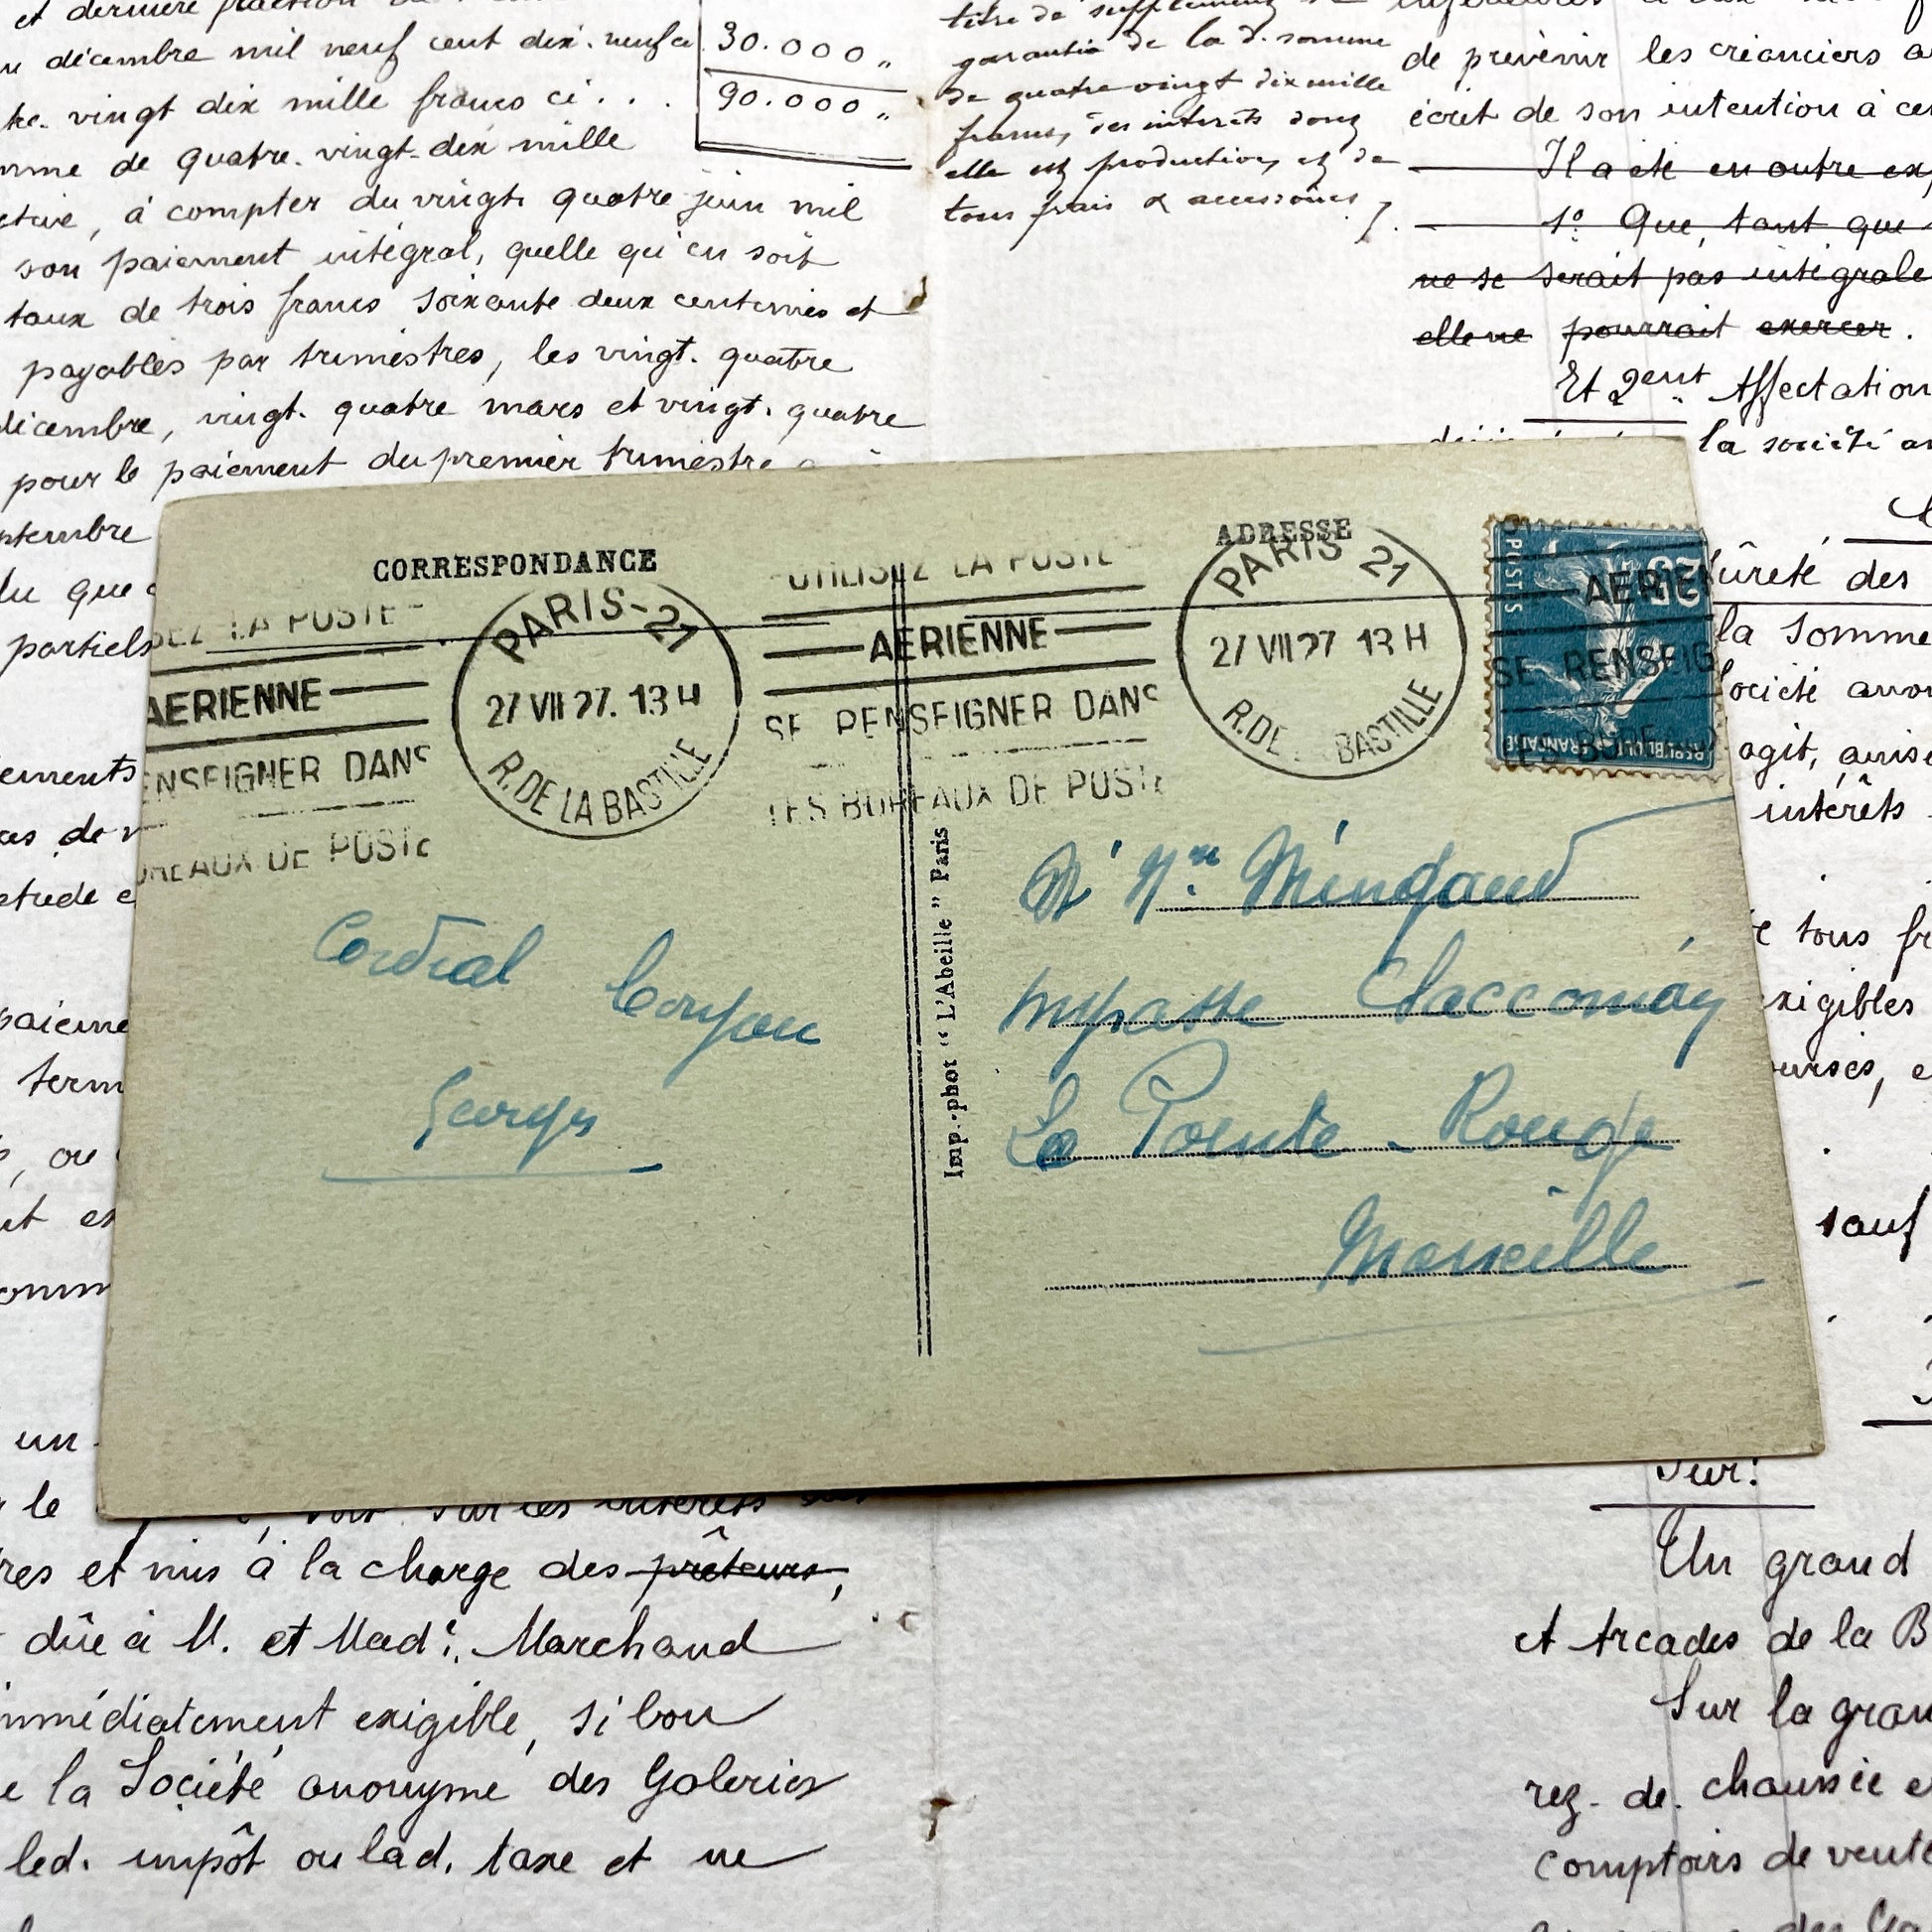 et dernière fraction
décembre mil neuf cent dix. neuf ci
30.000 „
vingt dix mille francs ci . . .
90.000 „
de quatre. vingt-dix mille
, à compter du vingt. quatre juin mil
son paiement intégral, quelle qu'en soit
taux de trois francs soixante deux centimes et
payables par trimestres, les vingt. quatre
décembre, vingt. quatre mars et vingt. quatre
pour le paiement du premier trimestre
titre de supplément
garantie de la d. somme
de quatre vingt dix mille
francs, des intérêts dont
elle est productive, et de
tous frais & accessoires /.
de prévenir les créanciers
écrit de son intention à
Il a été en outre
1º Que, tant que
ne se serait pas
elle ne pourrait exercer.
Et 2ent Affectation
la société
que
sûreté des
la somme
agit,
intérêts
tous
exigibles
sauf
CORRESPONDANCE
ADRESSE
LA POSTE
AERIENNE
DANS
DE POSTE
PARIS-21
27 VII 27. 13 H
R. DE LA BASTILLE
UTILISEZ LA POSTE
AERIENNE
SE RENSEIGNER DANS
LES BUREAUX DE POSTE
PARIS 21
27 VII 27 13 H
R. DE BASTILLE
POSTES
25
REPUBLIQUE FRANÇAISE
AERIE
SE RENSEIG
Imp.-phot " L'Abeille " Paris
Cordial bonjour
Georges
Mingaud
Impasse
La Pointe-Rouge
Marseille
un
le
sur les intérêts
et mis à la charge des prêteurs,
dûe à M. et Made. Marchand
immédiatement exigible, si bon
la Société anonyme des Galeries
led. impôt ou lad. taxe et ne
Sur:
Un grand
et Arcades de la B
Sur la
rez-de-chaussée
comptoirs de vente